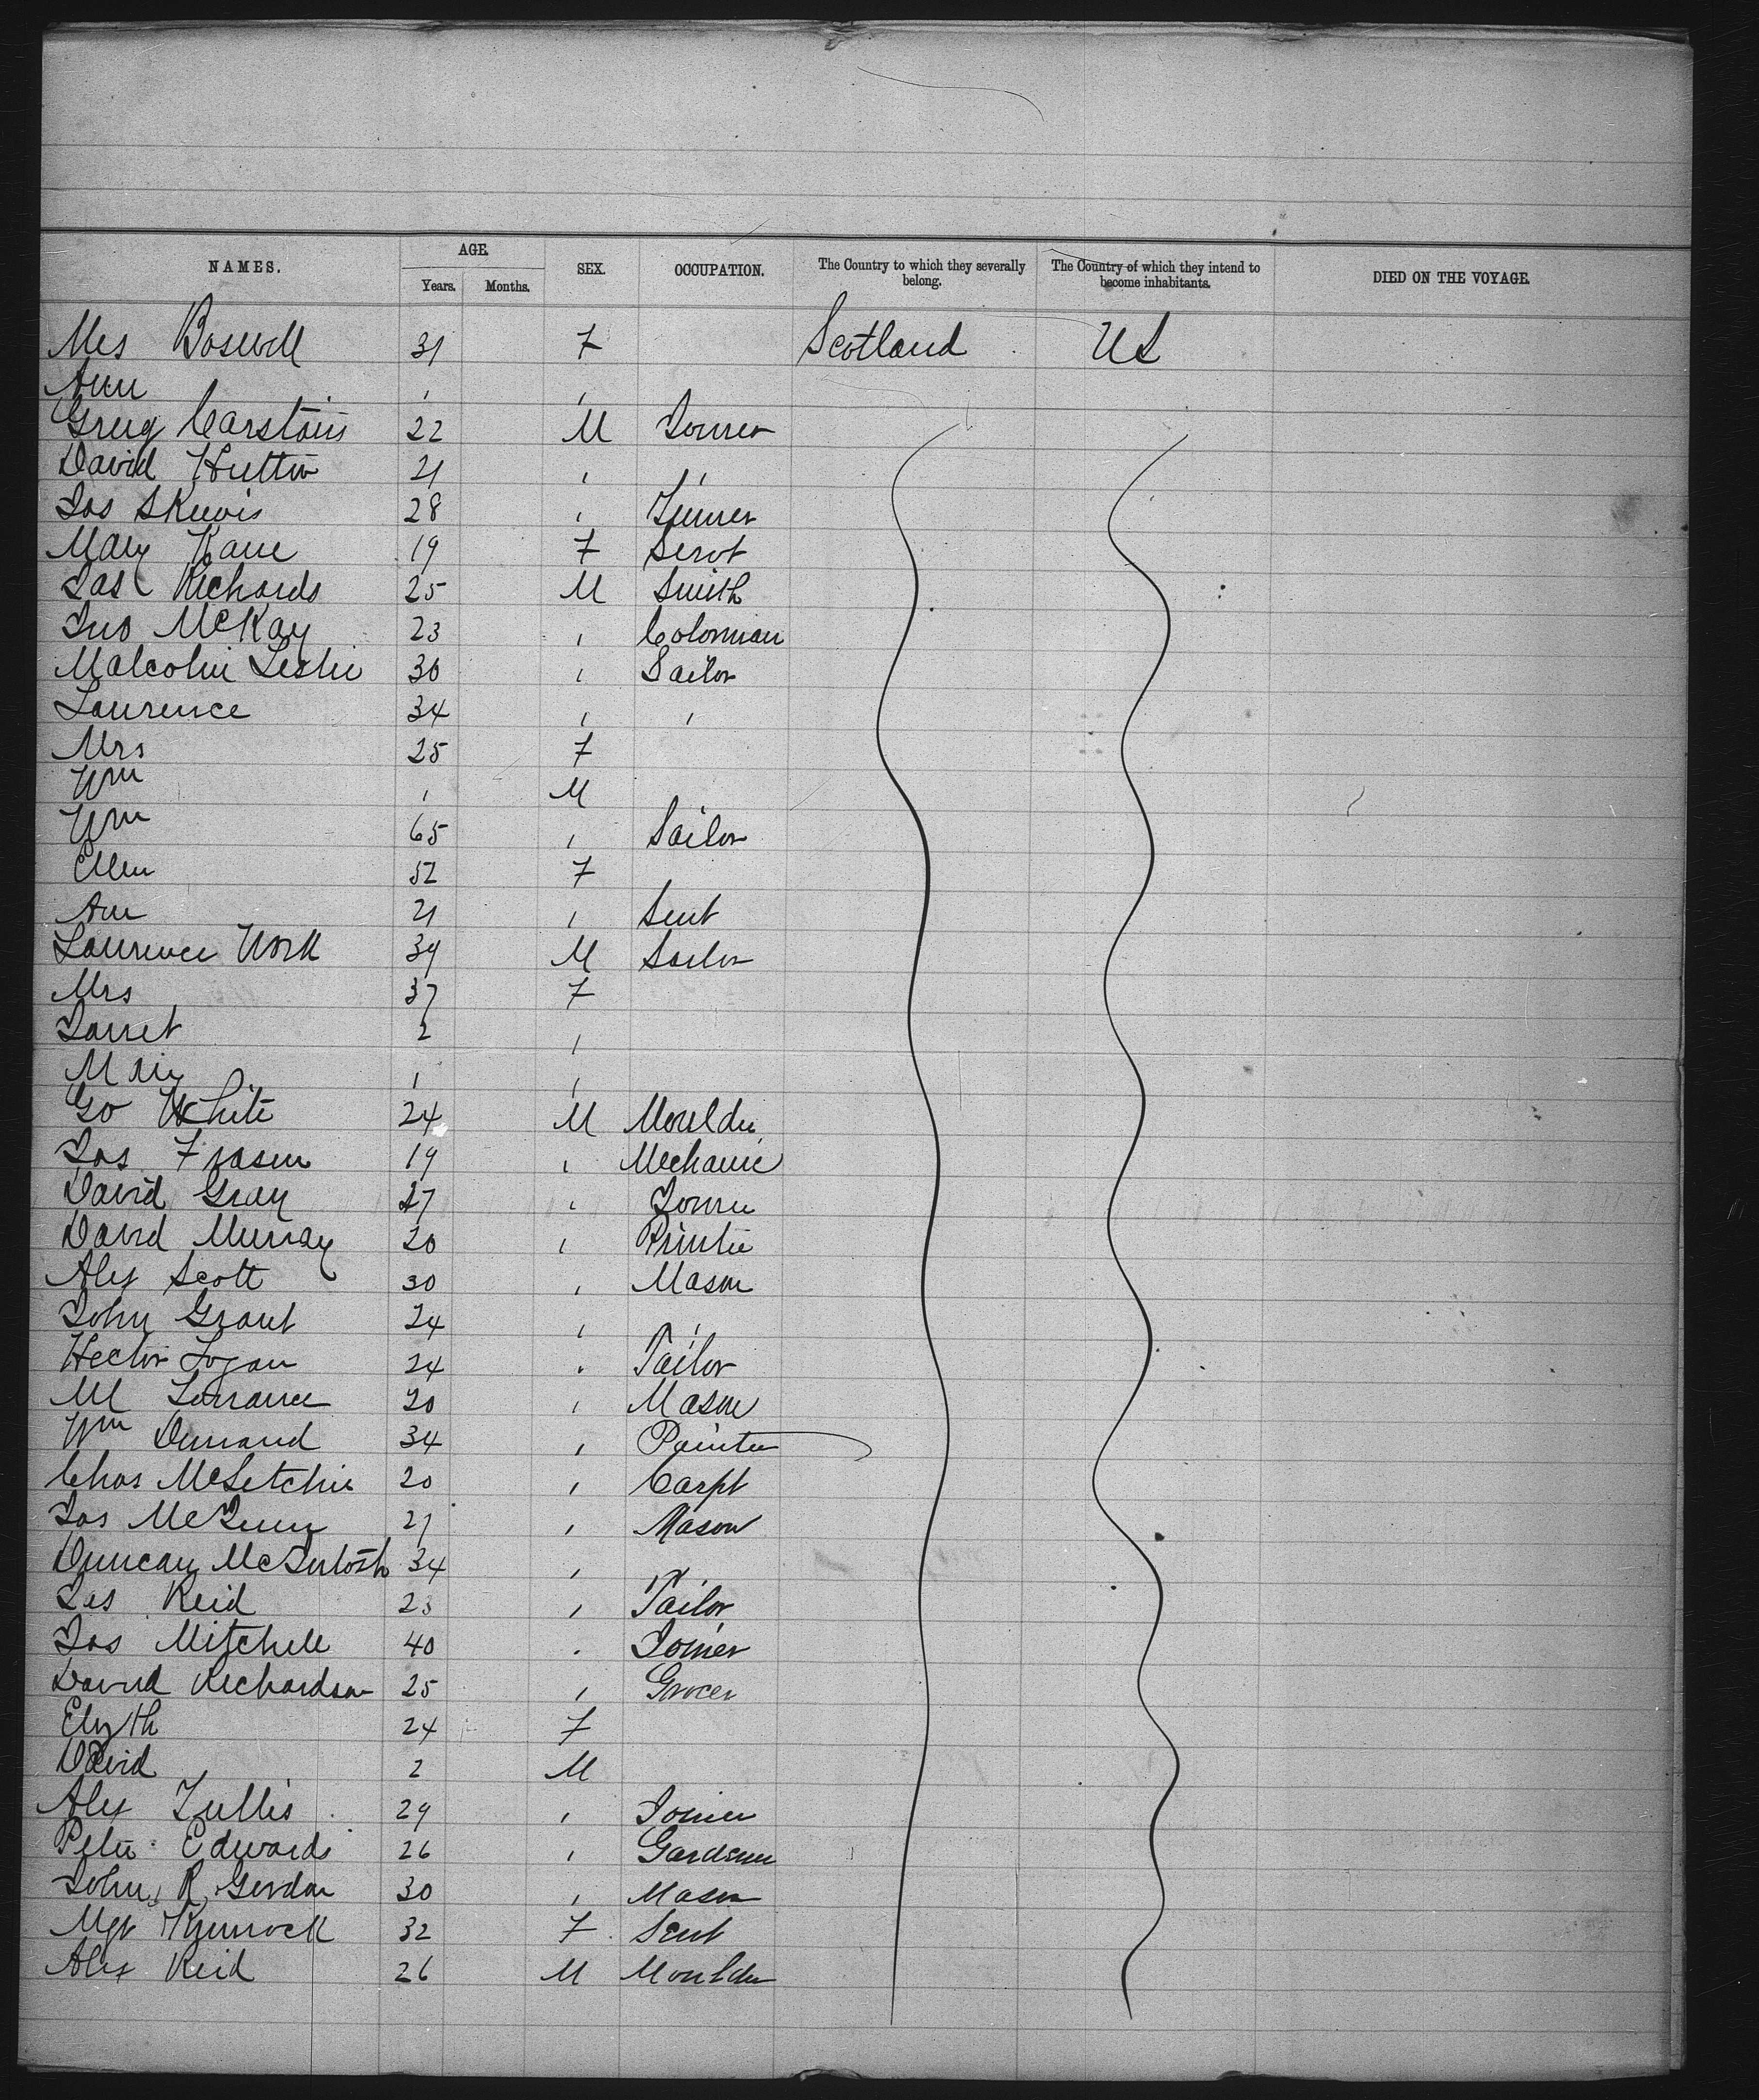 NAMES. AGE. SEX. OCCUPATION. The Country to which they severally belong. The Country of which they intend to become inhabitants. DIED ON THE VOYAGE.
Years. Months.
Mrs Boswell 31 F Scotland US
Ann 1 "
Greig Carstairs 22 M Joiner
David Hutton 21 " "
Jas Skevis 28 " Turner
Mary Kane 19 F Servt
Jas Richards 25 M Smith
Jno McKay 23 " Coloman
Malcolm Leslie 30 " Sailor
Laurence 34 " "
Mrs 25 F
Wm 1 M
Wm 65 " Sailor
Ellen 52 F
Ann 21 " Sevt
Laurence Work 39 M Sailor
Mrs 37 F
Janet 2 "
Mary 1 "
Go White 24 M Moulder
Jas Fraser 19 " Mechanic
David Gray 27 " Joiner
David Murray 20 " Printer
Alex Scott 30 " Mason
John Grant 24 " "
Hector Logan 24 " Tailor
M Lorrance 20 " Mason
Wm Durrand 34 " Painter
Chas McLetchie 20 " Carpt
Jas 27 " Mason
Duncan McIntosh 34 " "
Jas Reid 23 " Tailor
Jas Mitchell 40 " Joiner
David Richardson 25 " Grocer
Elizth 24 F
David 2 M
Alex Tullis 29 " Joiner
Peter Edwards 26 " Gardener
John R Gordon 30 " Mason
Mgt 32 F Sevt
Alex Reid 26 M Moulder